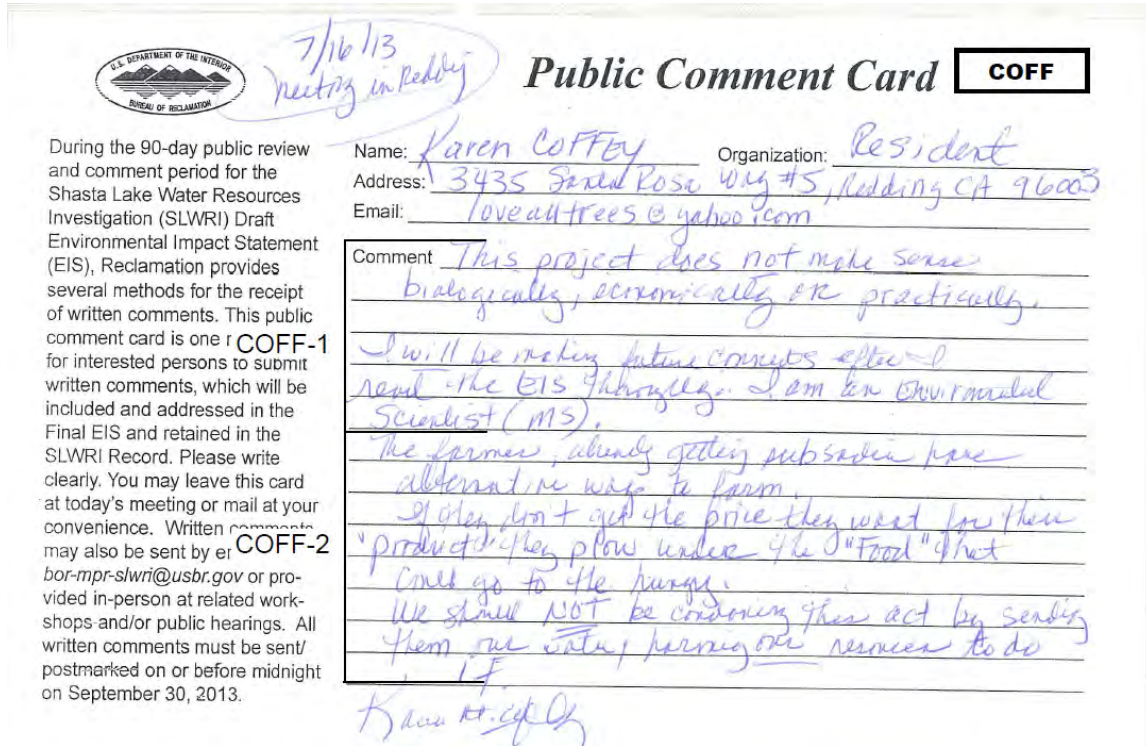 U.S. DEPARTMENT OF THE INTERIOR
BUREAU OF RECLAMATION
7/16/13
Meeting in Redding
Public Comment Card
COFF
During the 90-day public review
and comment period for the
Shasta Lake Water Resources
Investigation (SLWRI) Draft
Environmental Impact Statement
(EIS), Reclamation provides
several methods for the receipt
of written comments. This public
comment card is one
COFF-1
for interested persons to submit
written comments, which will be
included and addressed in the
Final EIS and retained in the
SLWRI Record. Please write
clearly. You may leave this card
at today's meeting or mail at your
convenience. Written comments
may also be sent by
COFF-2
bor-mpr-slwri@usbr.gov or pro-
vided in-person at related work-
shops and/or public hearings. All
written comments must be sent/
postmarked on or before midnight
on September 30, 2013.
Name: Karen COFFEY Organization: Resident
Address: 3435 Santa Rosa Way #5, Redding CA 96003
Email: lovealltrees@yahoo.com
Comment This project does not make sense
biologically, economically OR practically.
I will be making future comments after I
read the EIS thoroughly. I am an Environmental
Scientist (MS).
The farmers, already getting subsadies have
alternative ways to farm.
If they don't get the price they want for their
"product" they plow under the "Food" that
could go to the hungry.
We should NOT be condoning this act by sending
them our water, harming our resources to do
it.
Karen